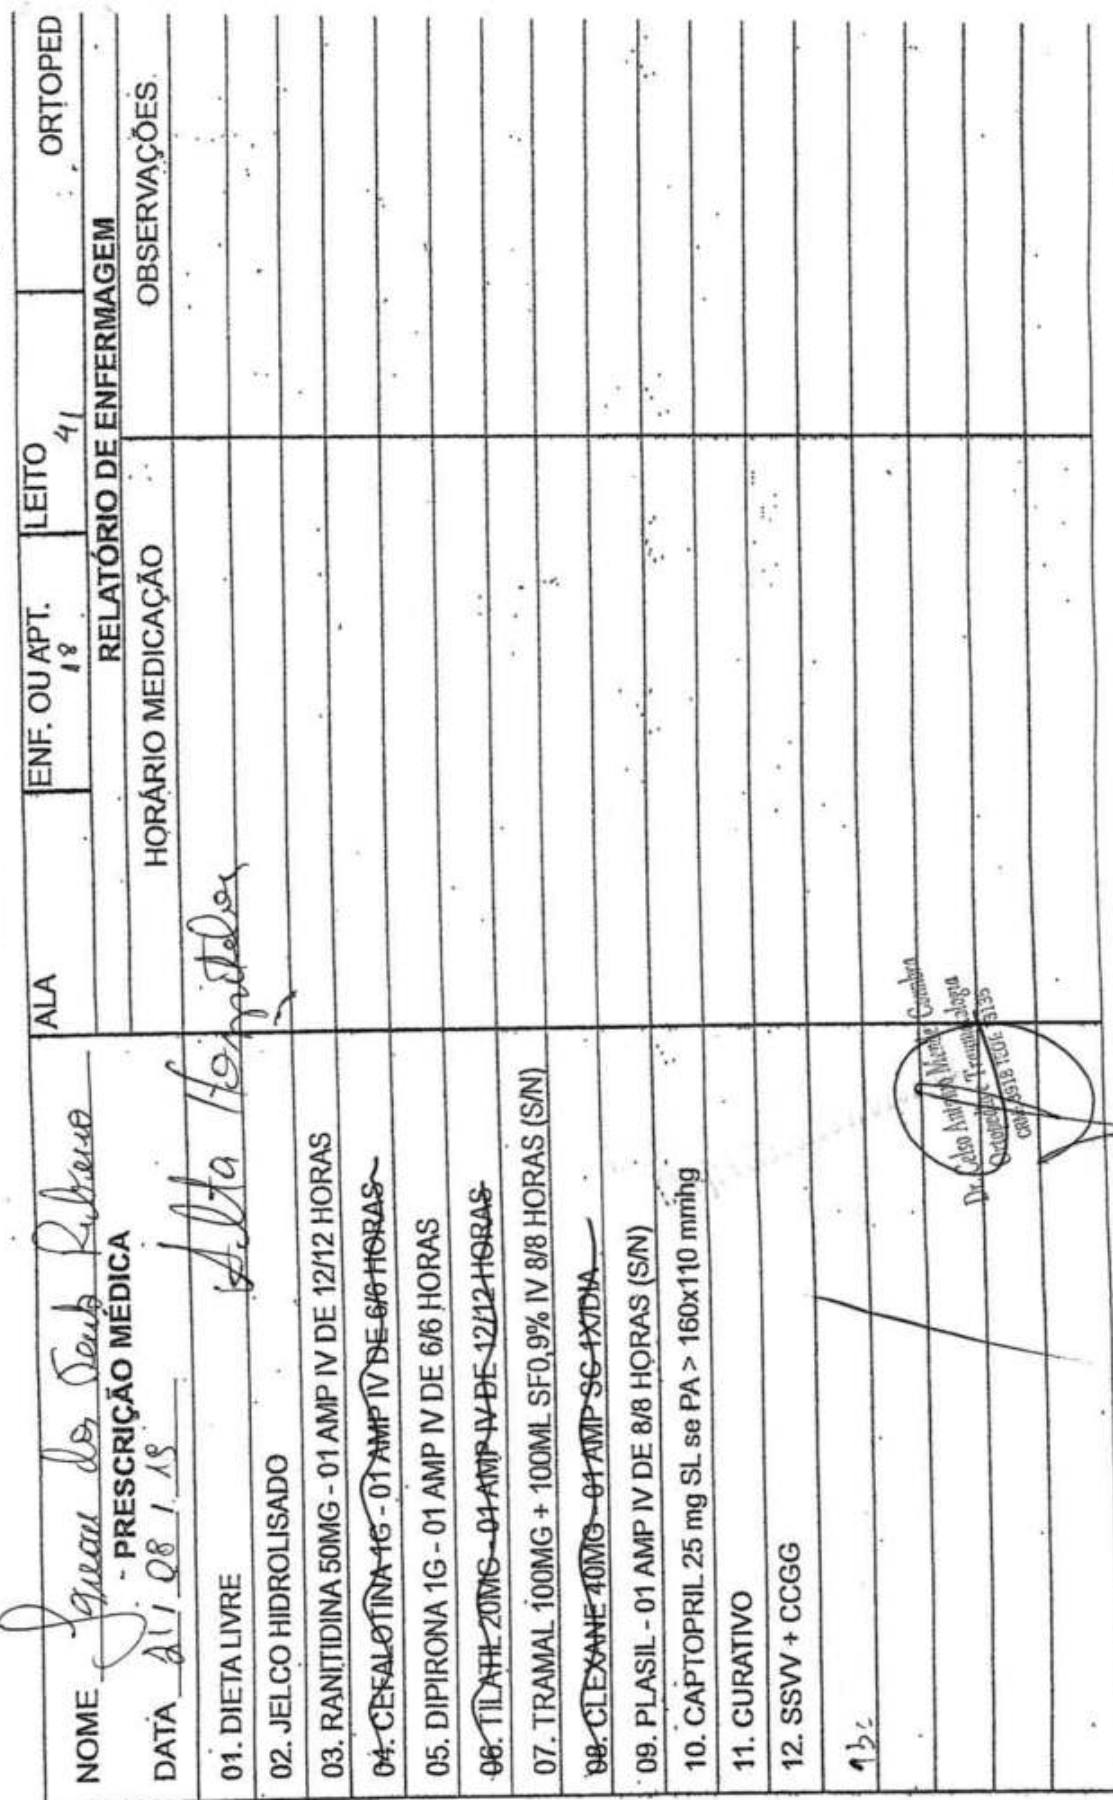 NOME dos Ribeiro ALA ENF. OU APT. 18 LEITO 41 ORTOPED
- PRESCRIÇÃO MÉDICA RELATÓRIO DE ENFERMAGEM
DATA 21 / 08 / 19 HORÁRIO MEDICAÇÃO OBSERVAÇÕES.
Alta Hospitalar
01. DIETA LIVRE
02. JELCO HIDROLISADO
03. RANITIDINA 50MG - 01 AMP IV DE 12/12 HORAS
04. CEFALOTINA 1G - 01 AMP IV DE 6/6 HORAS
05. DIPIRONA 1G - 01 AMP IV DE 6/6 HORAS
06. TILATIL 20MG - 01 AMP IV DE 12/12 HORAS
07. TRAMAL 100MG + 100ML SF0,9% IV 8/8 HORAS (S/N)
08. CLEXANE 40MG - 01 AMP SC 1X/DIA
09. PLASIL - 01 AMP IV DE 8/8 HORAS (S/N)
10. CAPTOPRIL 25 mg SL se PA > 160x110 mmhg
11. GURATIVO
12. SSVV + CCGG
Dr. Celso Antonio Mendes Coimbra
Ortopedia e Traumatologia